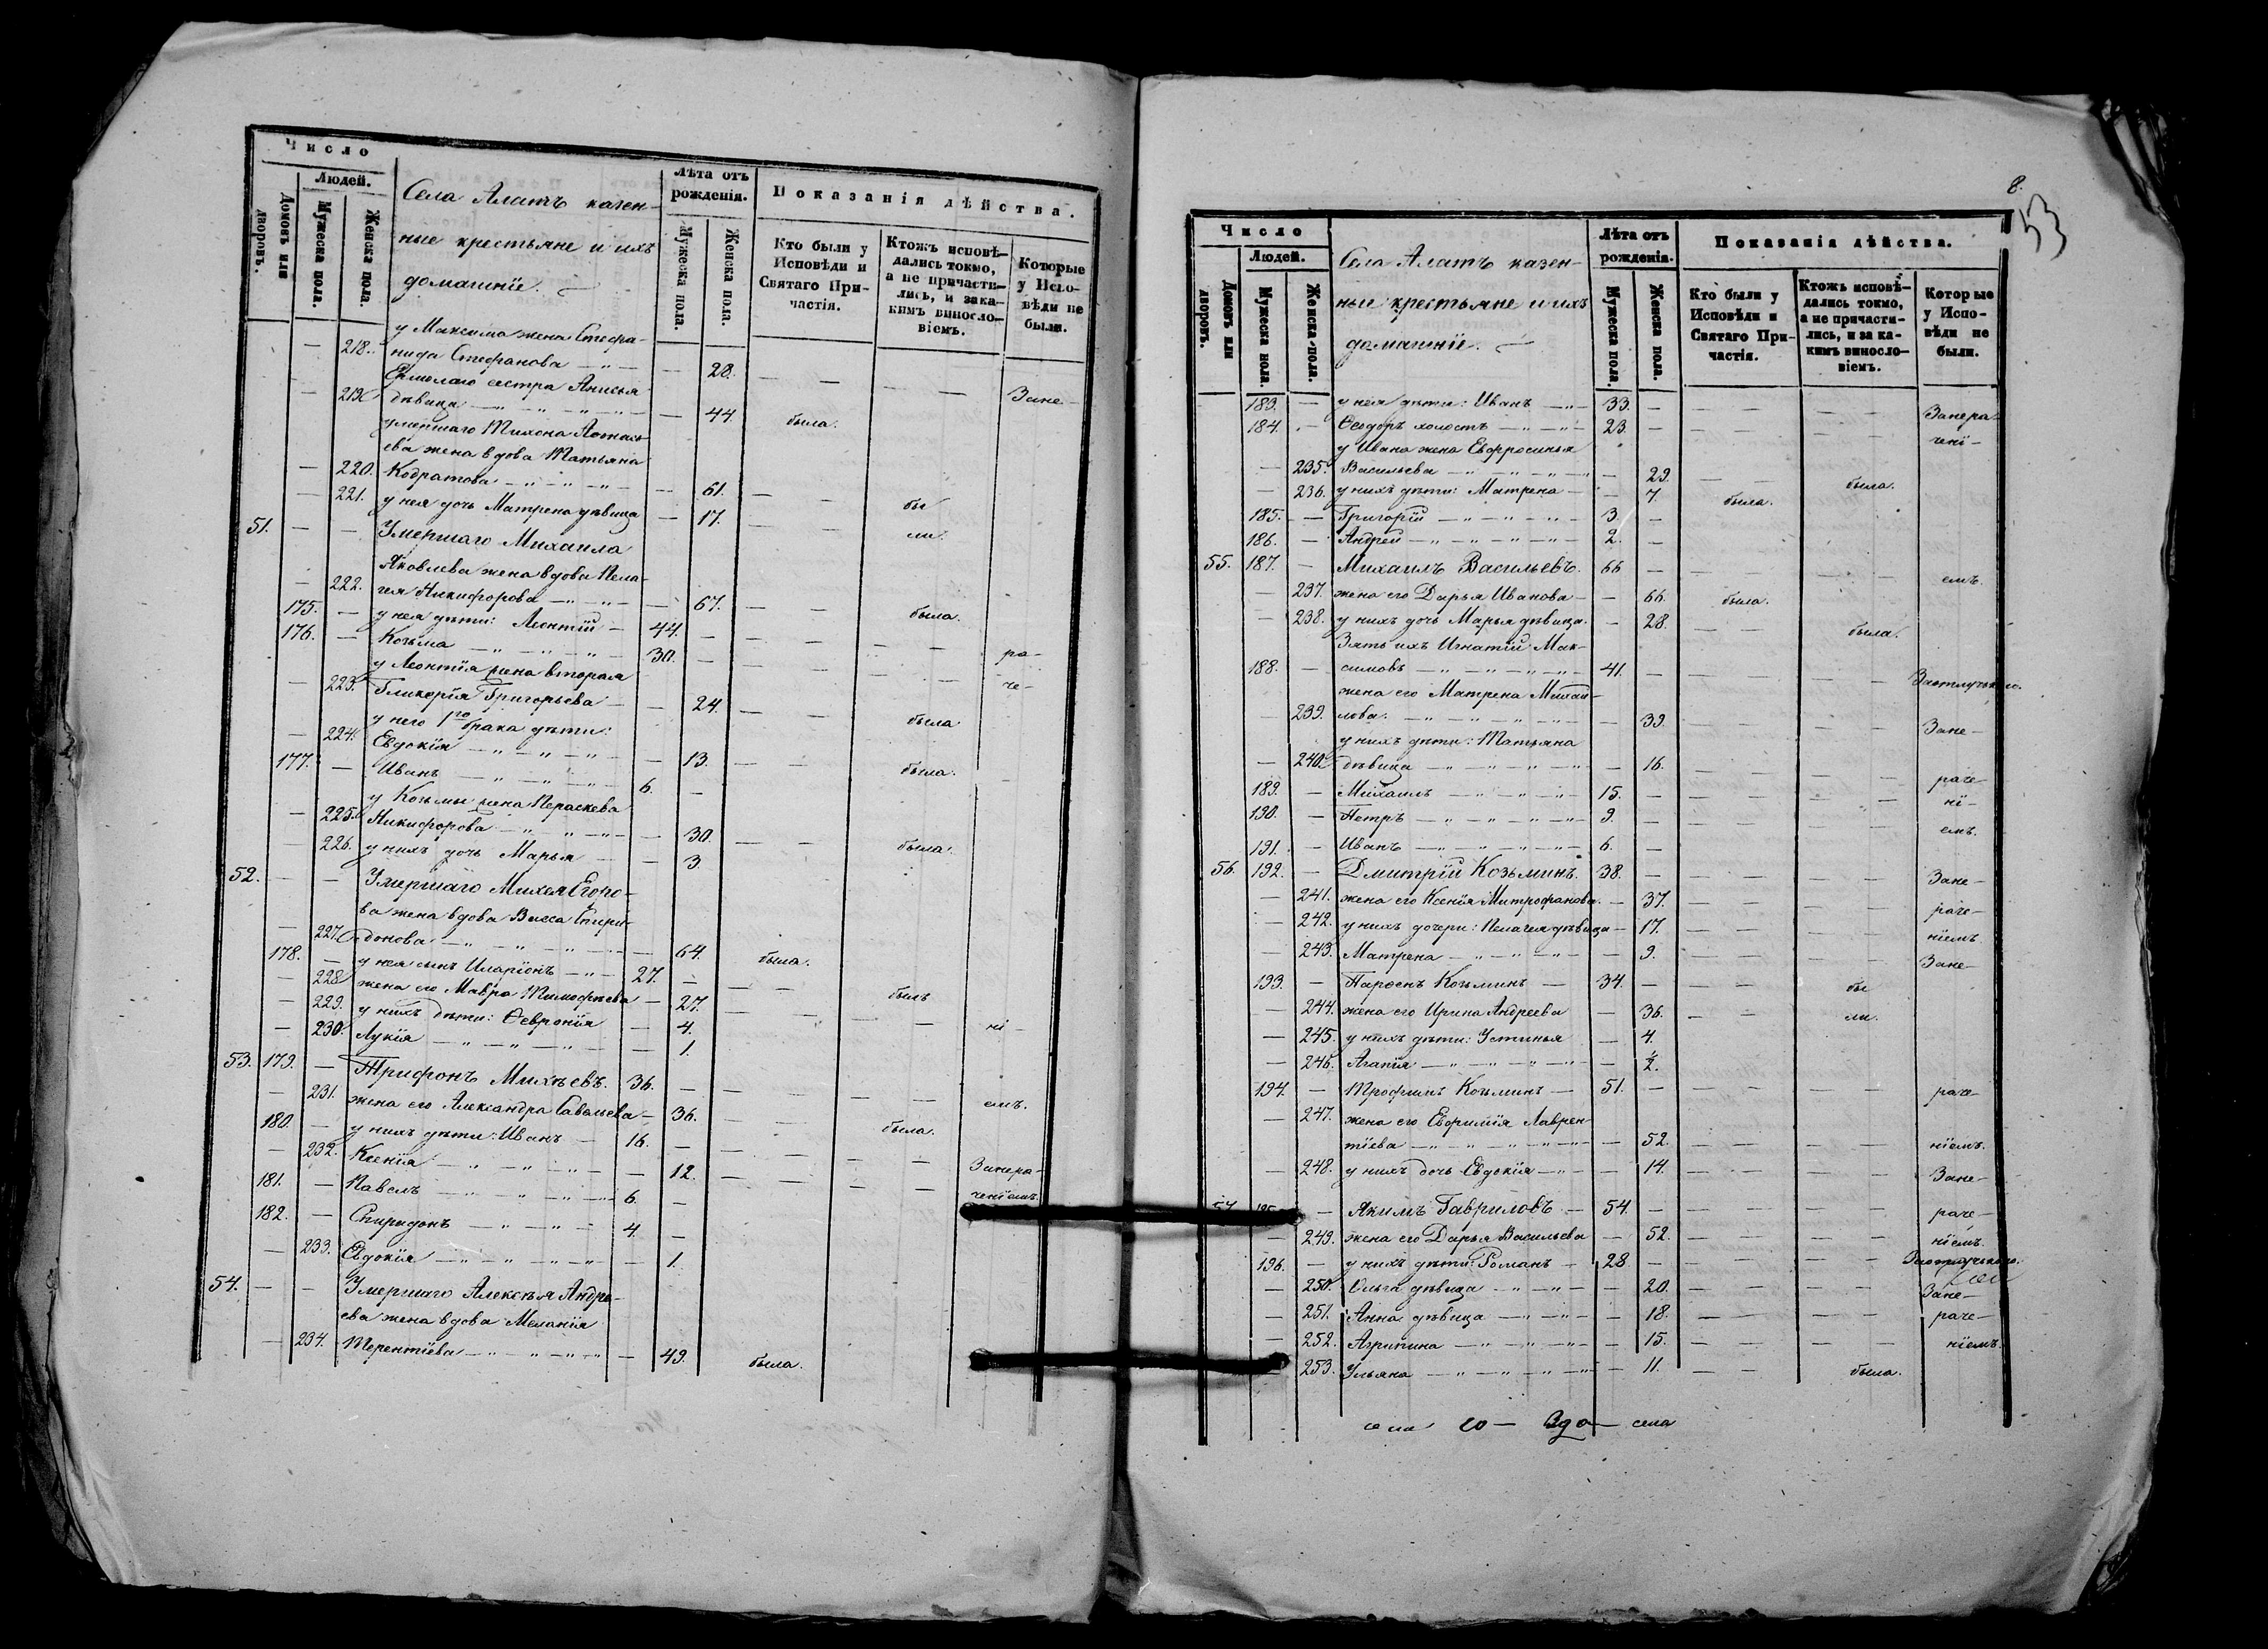 Число
Людей.
Домовъ или дворовъ.
Мужеска пола.
Женска пола.
Села Алатъ казен-
ные крестьяне и ихъ
домашніе.
Лѣта отъ рожденія.
Мужеска пола.
Женска пола.
Показанія дѣйства.
Кто были у Исповѣди и Святаго При-частія.
Ктожъ исповѣ-дались токмо, а не причасти-лись, и зака-кимъ винословіемъ.
Которые у Испо-вѣди не были.
у Максима жена Стефа-
218. нида Стефанова 28.
сестра Анисья Зане-
219. дѣвица 44. была.
умершаго Тихона
ева жена вдова Татьяна
220. Кодратова 61. бы
221. у нея дочь Матрена дѣвица 17. ли.
51. Умершаго Михаила
Яковлева жена вдова Пела-
222. гея Никифорова 67. была.
175. у нея дѣти: Леонтій 44. ра-
176. Козьма 30. че-
у Леонтія жена вторая
223. Гликерія Григорьева 24. была
у него 1го брака дѣти:
224. Евдокія 13. была.
177. Иванъ 6.
у Козьмы жена Параскева
225. Никифорова 30. была.
226. у нихъ дочь Марья 3
52. Умершаго Михея Егоро-
ва жена вдова Васса Спири-
227. донова 64. была.
178. у нея сынъ Иларіонъ 27. былъ
228. жена его Мавра Тимофеева 27. ні-
229. у нихъ дѣти: Ѳевронія 4.
230. Лукія 1.
53. 179. Трифонъ Михѣевъ. 36. емъ.
231. жена его Александра Савельева 36. была.
180. у нихъ дѣти: Иванъ 16. Занера-
232. Ксенія 12. ченіемъ.
181. Павелъ 6.
182. Спиридонъ 4.
233. Евдокія 1.
54. Умершаго Алексѣя Андре-
ева жена вдова Меланія
234. Терентіева 49. была.
8.
53
Число
Людей.
Домовъ или дворовъ.
Мужеска пола.
Женска пола.
Села Алатъ казен-
ные крестьяне и ихъ
домашніе.
Лѣта отъ рожденія.
Мужеска пола.
Женска пола.
Показанія дѣйства.
Кто были у Исповѣди и Святаго При-частія.
Ктожъ исповѣ-дались токмо, а не причасти-лись, и за ка-кимъ виносло-віемъ.
Которые у Испо-вѣди не были.
183. у нея дѣти: Иванъ 33. Занера-
184. Ѳеодоръ холостъ 23. чені-
у Ивана жена Евфросинья
235. Васильева 29. была.
236. у нихъ дѣти: Матрена 7. была.
185. Григорій 3.
186. Андрей 2.
55. 187. Михаилъ Васильевъ. 66 емъ.
237. жена его Дарья Иванова 66. была.
238. у нихъ дочь Марья дѣвица. 28. была.
Зять ихъ Игнатій Мак-
188. симовъ 41.
жена его Матрена Михай-
239. лова. 39. Зане-
у нихъ дѣти: Татьяна
240. дѣвица 16. раче-
189. Михаилъ 15. ні-
190. Петръ 9 емъ.
191. Иванъ 6.
56. 192. Дмитрій Козьминъ. 38. Зане-
241. жена его Ксенія Митрофанова. 37. раче-
242. у нихъ дочери: Пелагея дѣвица 17. ніемъ
243. Матрена 9. Зане-
193. Парѳенъ Козьминъ 34. бы
244. жена его Ирина Андреева 36. ли.
245. у нихъ дѣти: Устинья 4.
246. Агапія
194. Трофимъ Козьминъ 51. раче-
247. жена его Евфимія Лаврен-
тіева 52. ніемъ.
248. у нихъ дочь Евдокія 14. Зане-
Якимъ Гавриловъ 54. раче-
249. жена его Дарья Васильева 52. ніемъ.
196. у нихъ дѣти: Романъ 28.
250. Ольга дѣвица 20. Зане-
251. Анна дѣвица 18. раче-
252. Агрипина 15. ніемъ.
253. Ульяна 11. была.
села